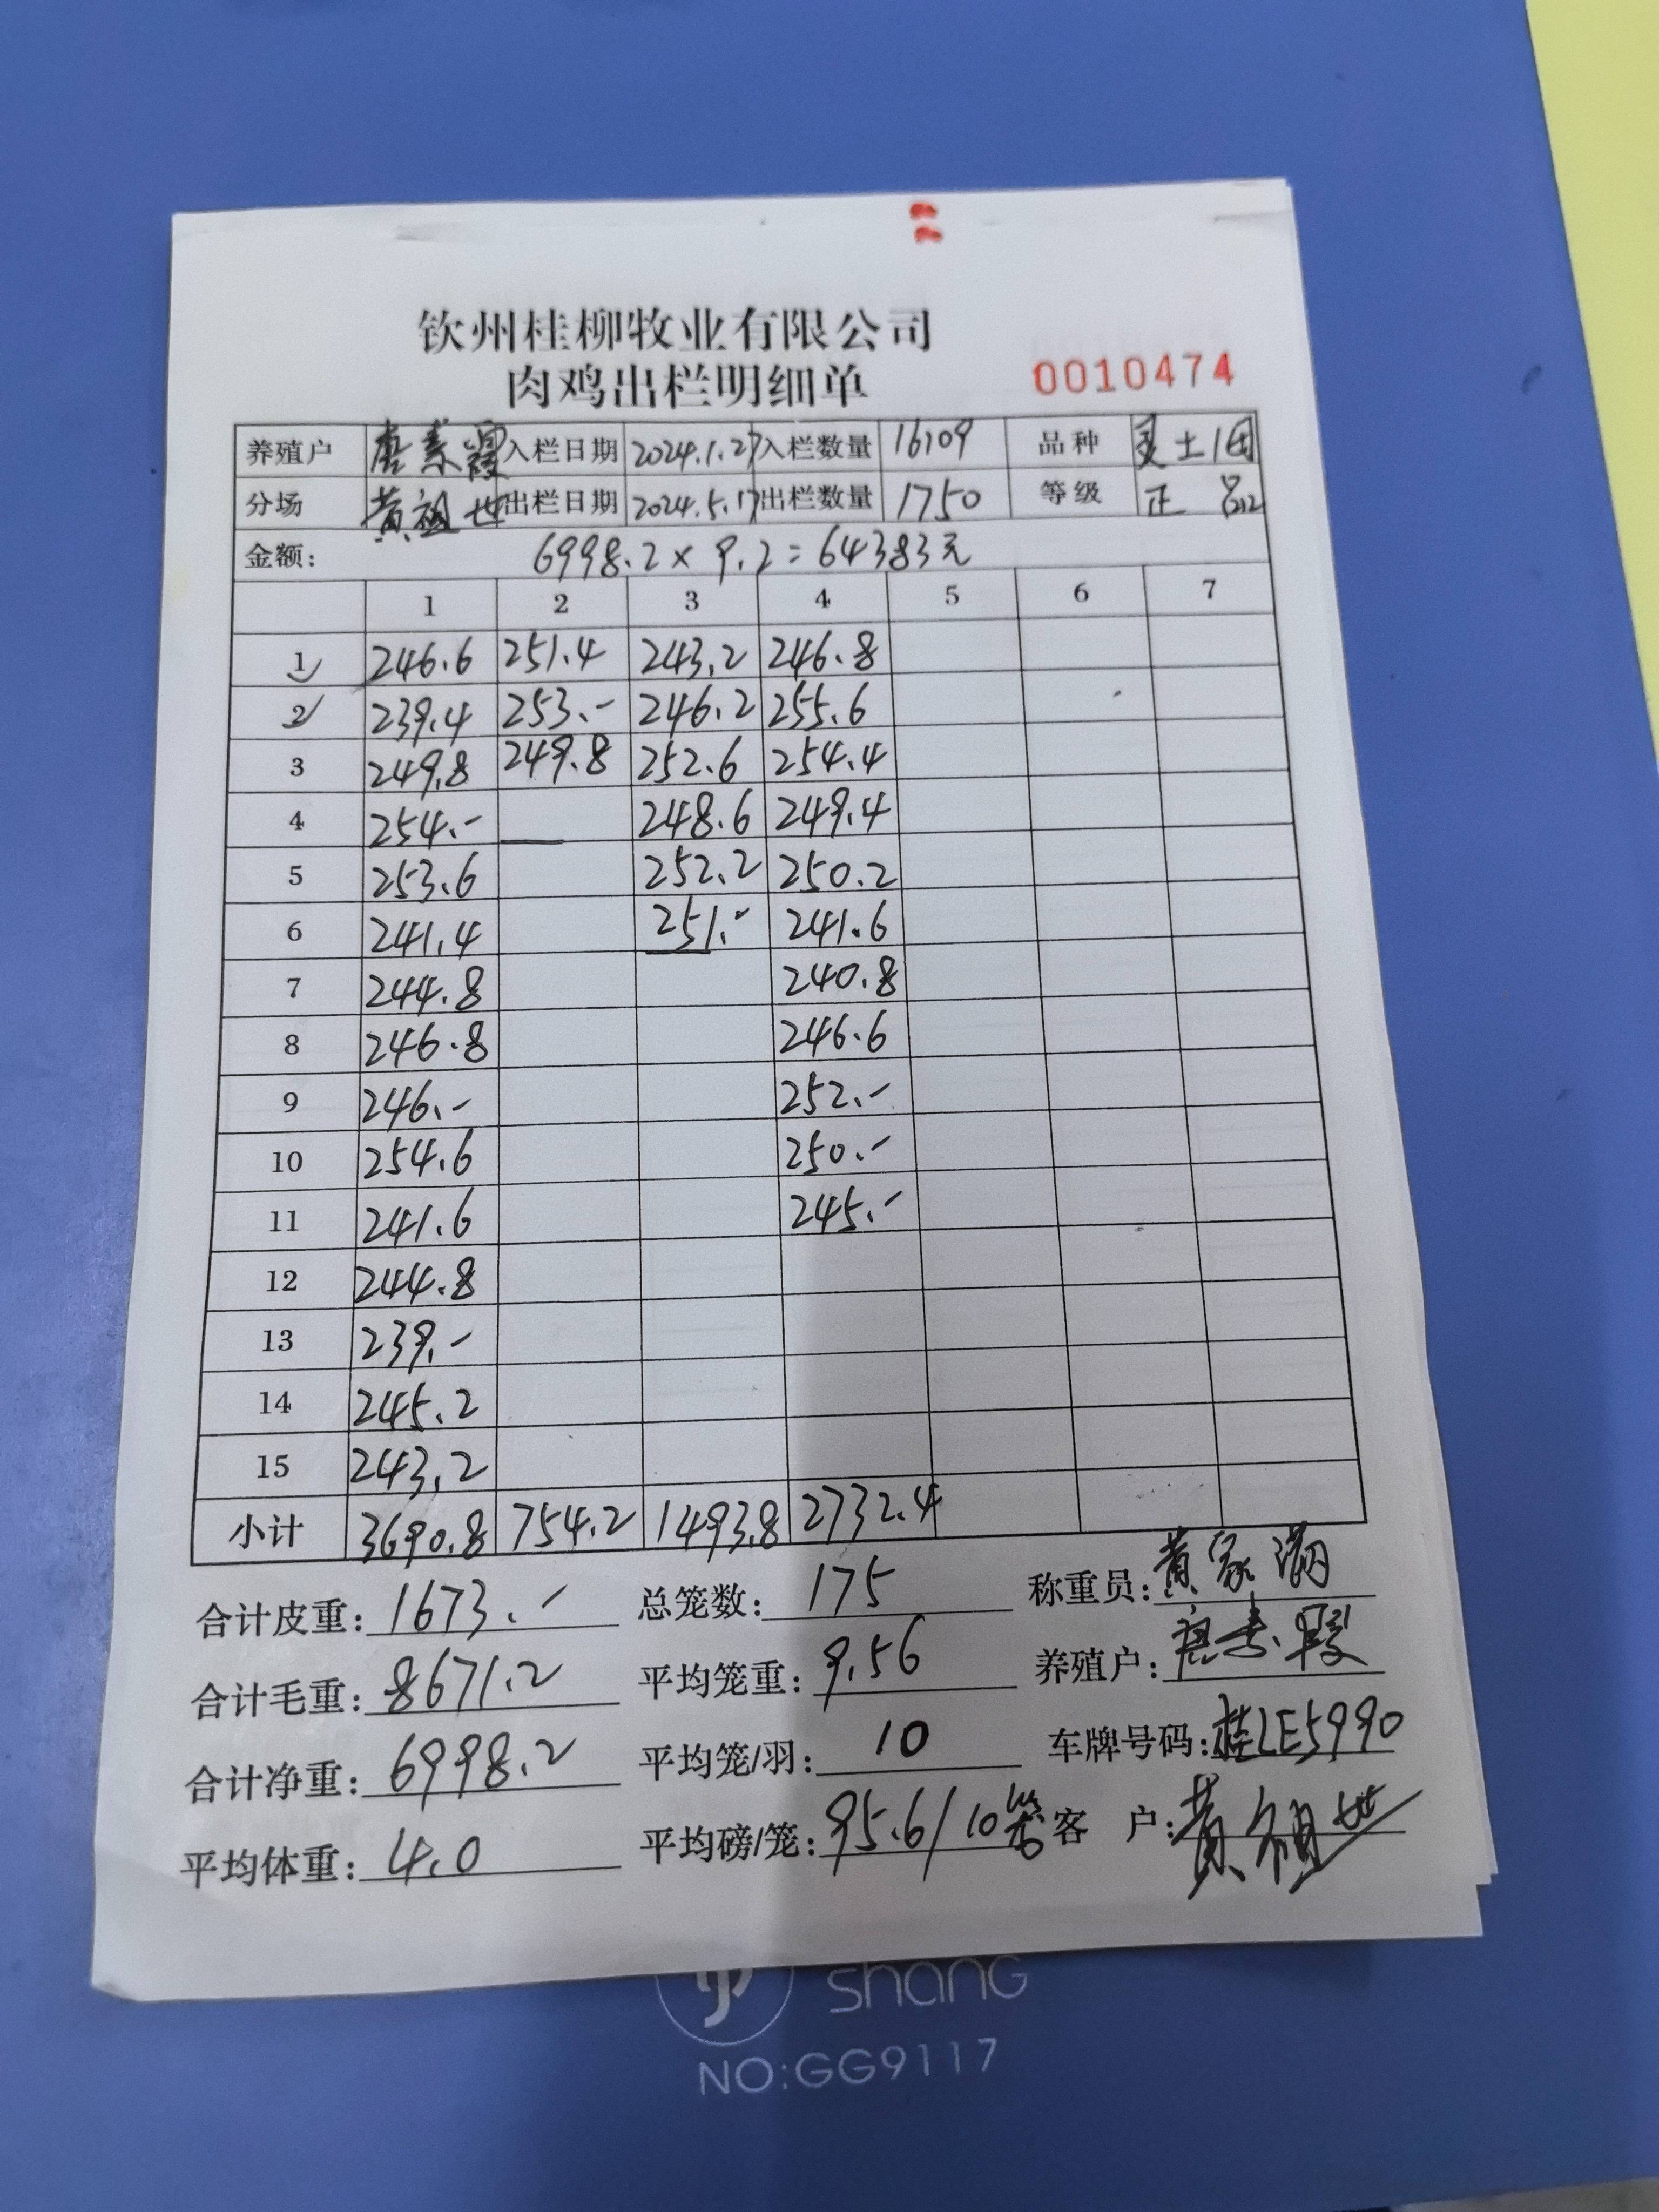 钦州桂柳牧业有限公司
肉鸡出栏明细单
0010474
养殖户 唐素霞 入栏日期 2024.1.27 入栏数量 16109 品种 灵土1团
分场 黄祖世 出栏日期 2024.5.17 出栏数量 1750 等级 正品
金额: 6998.2×9.2=64383元
1 2 3 4 5 6 7
1 246.6 251.4 243.2 246.8
2 239.4 253.- 246.2 255.6
3 249.8 249.8 252.6 254.4
4 254.- 248.6 249.4
5 253.6 252.2 250.2
6 241.4 251.- 241.6
7 244.8 240.8
8 246.8 246.6
9 246.- 252.-
10 254.6 250.-
11 241.6 245.-
12 244.8
13 239.-
14 245.2
15 243.2
小计 3690.8 754.2 1493.8 2732.4
合计皮重: 1673.- 总笼数: 175 称重员: 黄家满
合计毛重: 8671.2 平均笼重: 9.56 养殖户: 唐素霞
合计净重: 6998.2 平均笼/羽: 10 车牌号码: 桂LE5990
平均体重: 4.0 平均磅/笼: 95.6/10笼 客 户: 黄祖世
shang
NO:GG9117